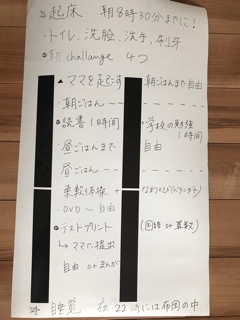 ☆起床 朝8時30分までに!
・トイレ、洗脸、洗手、刷牙
challange 4つ
▲ママを起こす
朝ごはんまで自由
・朝ごはん
・読書 1時間
・学校の勉強
1時間
昼ごはんまで
自由
昼ごはん
・柔軟体操
なわとび
・DVD〜自由
・テストプリント
(国語 or 算数)
↳ママに提出
自由 or まんが
睡覚 夜 22時には布団の中